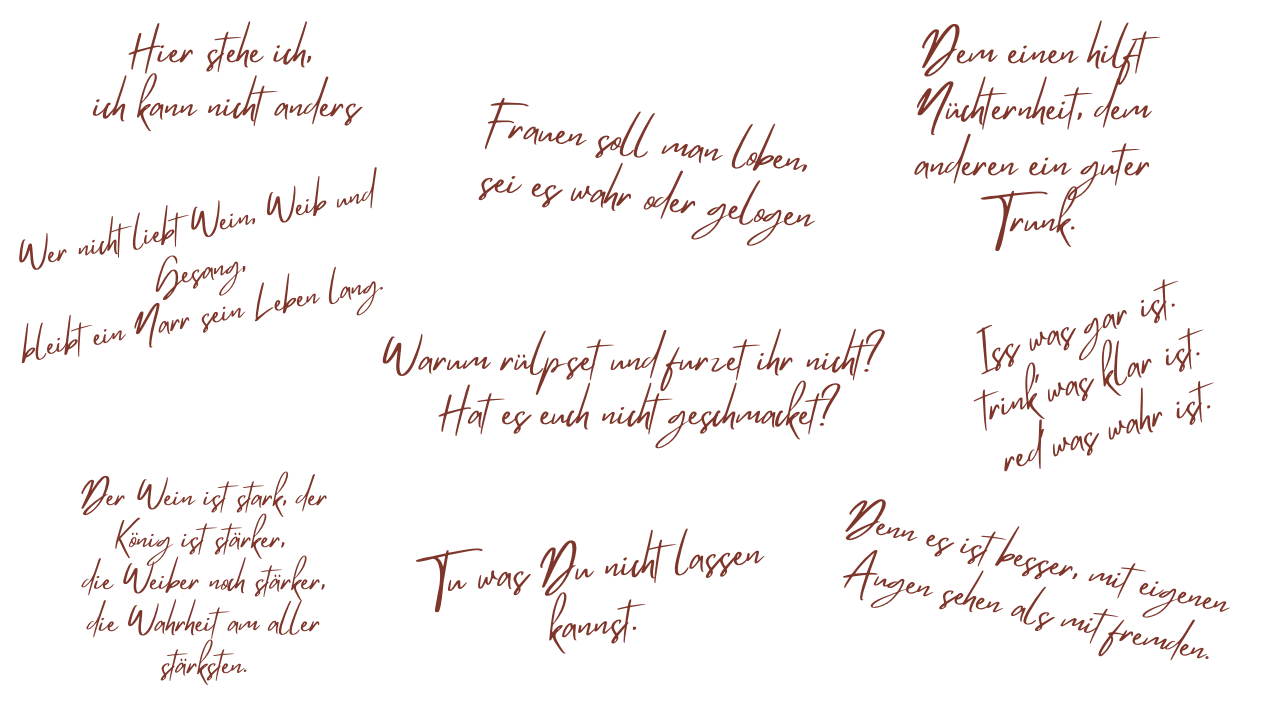 Hier stehe ich,
ich kann nicht anders
Wer nicht liebt Wein, Weib und
Gesang,
bleibt ein Narr sein Leben lang.
Frauen soll man loben,
sei es wahr oder gelogen
Dem einen hilft
Nüchternheit, dem
anderen ein guter
Trunk.
Warum rülpset und furzet ihr nicht?
Hat es euch nicht geschmacket?
Iss was gar ist.
trink' was klar ist.
red' was wahr ist.
Der Wein ist stark, der
König ist stärker,
die Weiber noch stärker,
die Wahrheit am aller
stärksten.
Tu was Du nicht lassen
kannst.
Denn es ist besser, mit eigenen
Augen sehen als mit fremden.